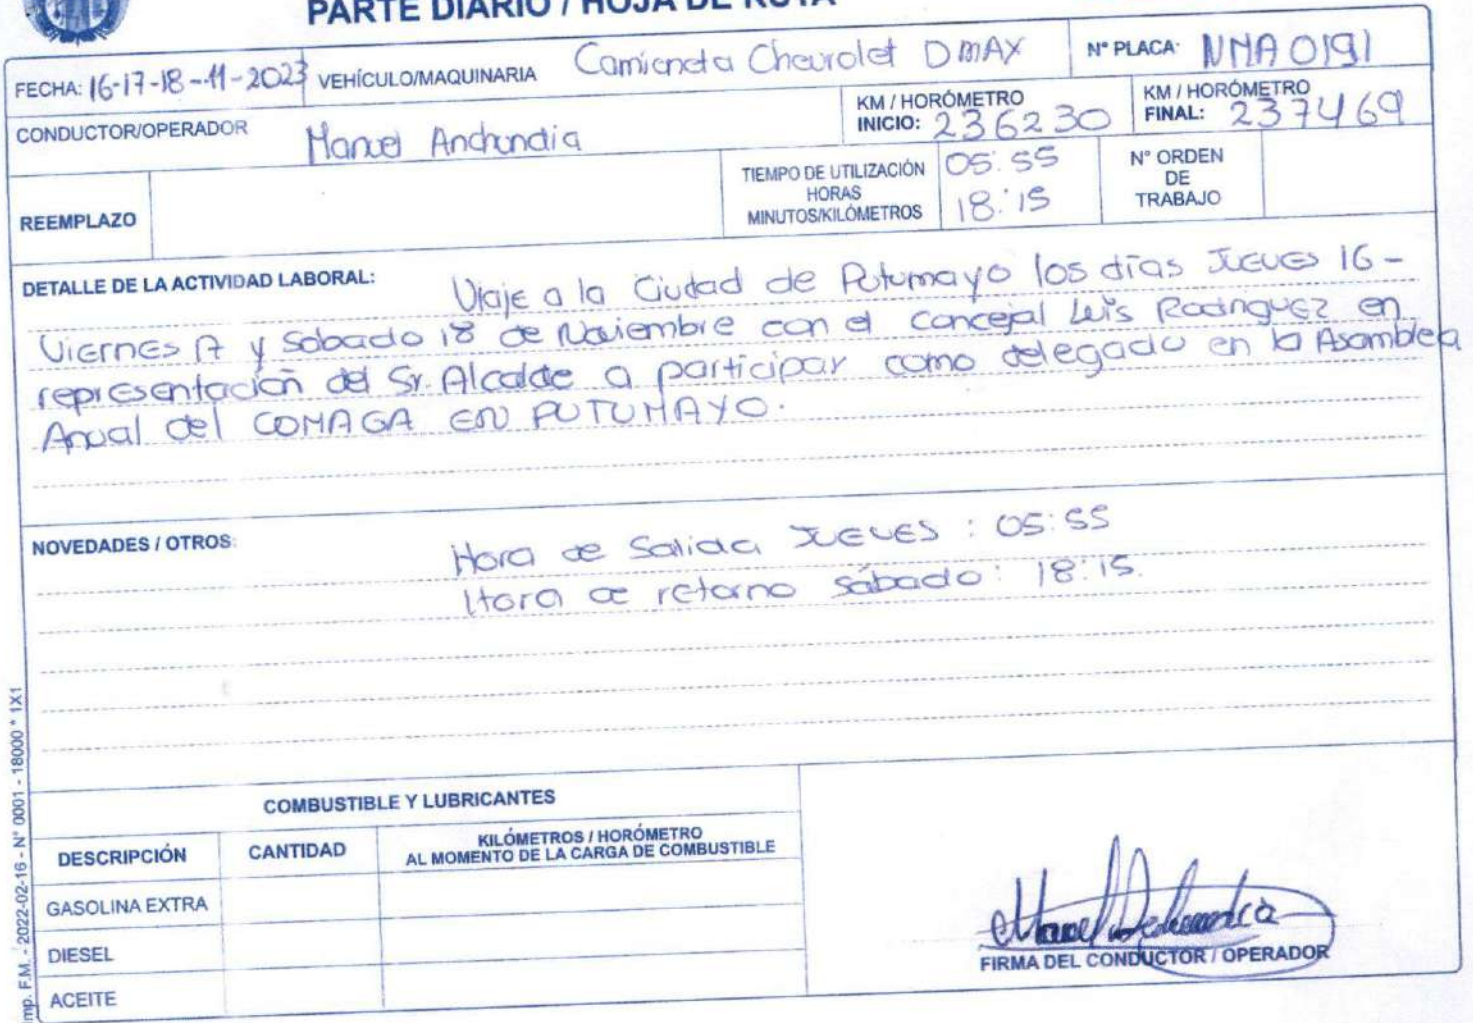 PARTE DIARIO / HOJA DE RUTA
FECHA: 16-17-18-11-2023 VEHÍCULO/MAQUINARIA Camioneta Chevrolet DMAX N° PLACA: NMA 0191
CONDUCTOR/OPERADOR Manuel Anchundia KM / HORÓMETRO INICIO: 236230 KM / HORÓMETRO FINAL: 237469
REEMPLAZO
TIEMPO DE UTILIZACIÓN 05:55
HORAS
MINUTOS/KILÓMETROS 18:15
N° ORDEN
DE
TRABAJO
DETALLE DE LA ACTIVIDAD LABORAL: Viaje a la Ciudad de Putumayo los días JUEVES 16 -
Viernes 17 y Sabado 18 de Noviembre con el concejal Luis Rodriguez en
representación del Sr. Alcalde a participar como delegado en la Asamblea
Anual del COMAGA EN PUTUMAYO.
NOVEDADES / OTROS: Hora de Salida JUEVES : 05:55
Hora de retorno sábado: 18:15.
COMBUSTIBLE Y LUBRICANTES
DESCRIPCIÓN CANTIDAD KILÓMETROS / HORÓMETRO
AL MOMENTO DE LA CARGA DE COMBUSTIBLE
GASOLINA EXTRA
DIESEL
ACEITE
Manuel Anchundia
FIRMA DEL CONDUCTOR / OPERADOR
Imp. F.M. - 2022-02-16 - N° 0001 - 18000 * 1X1